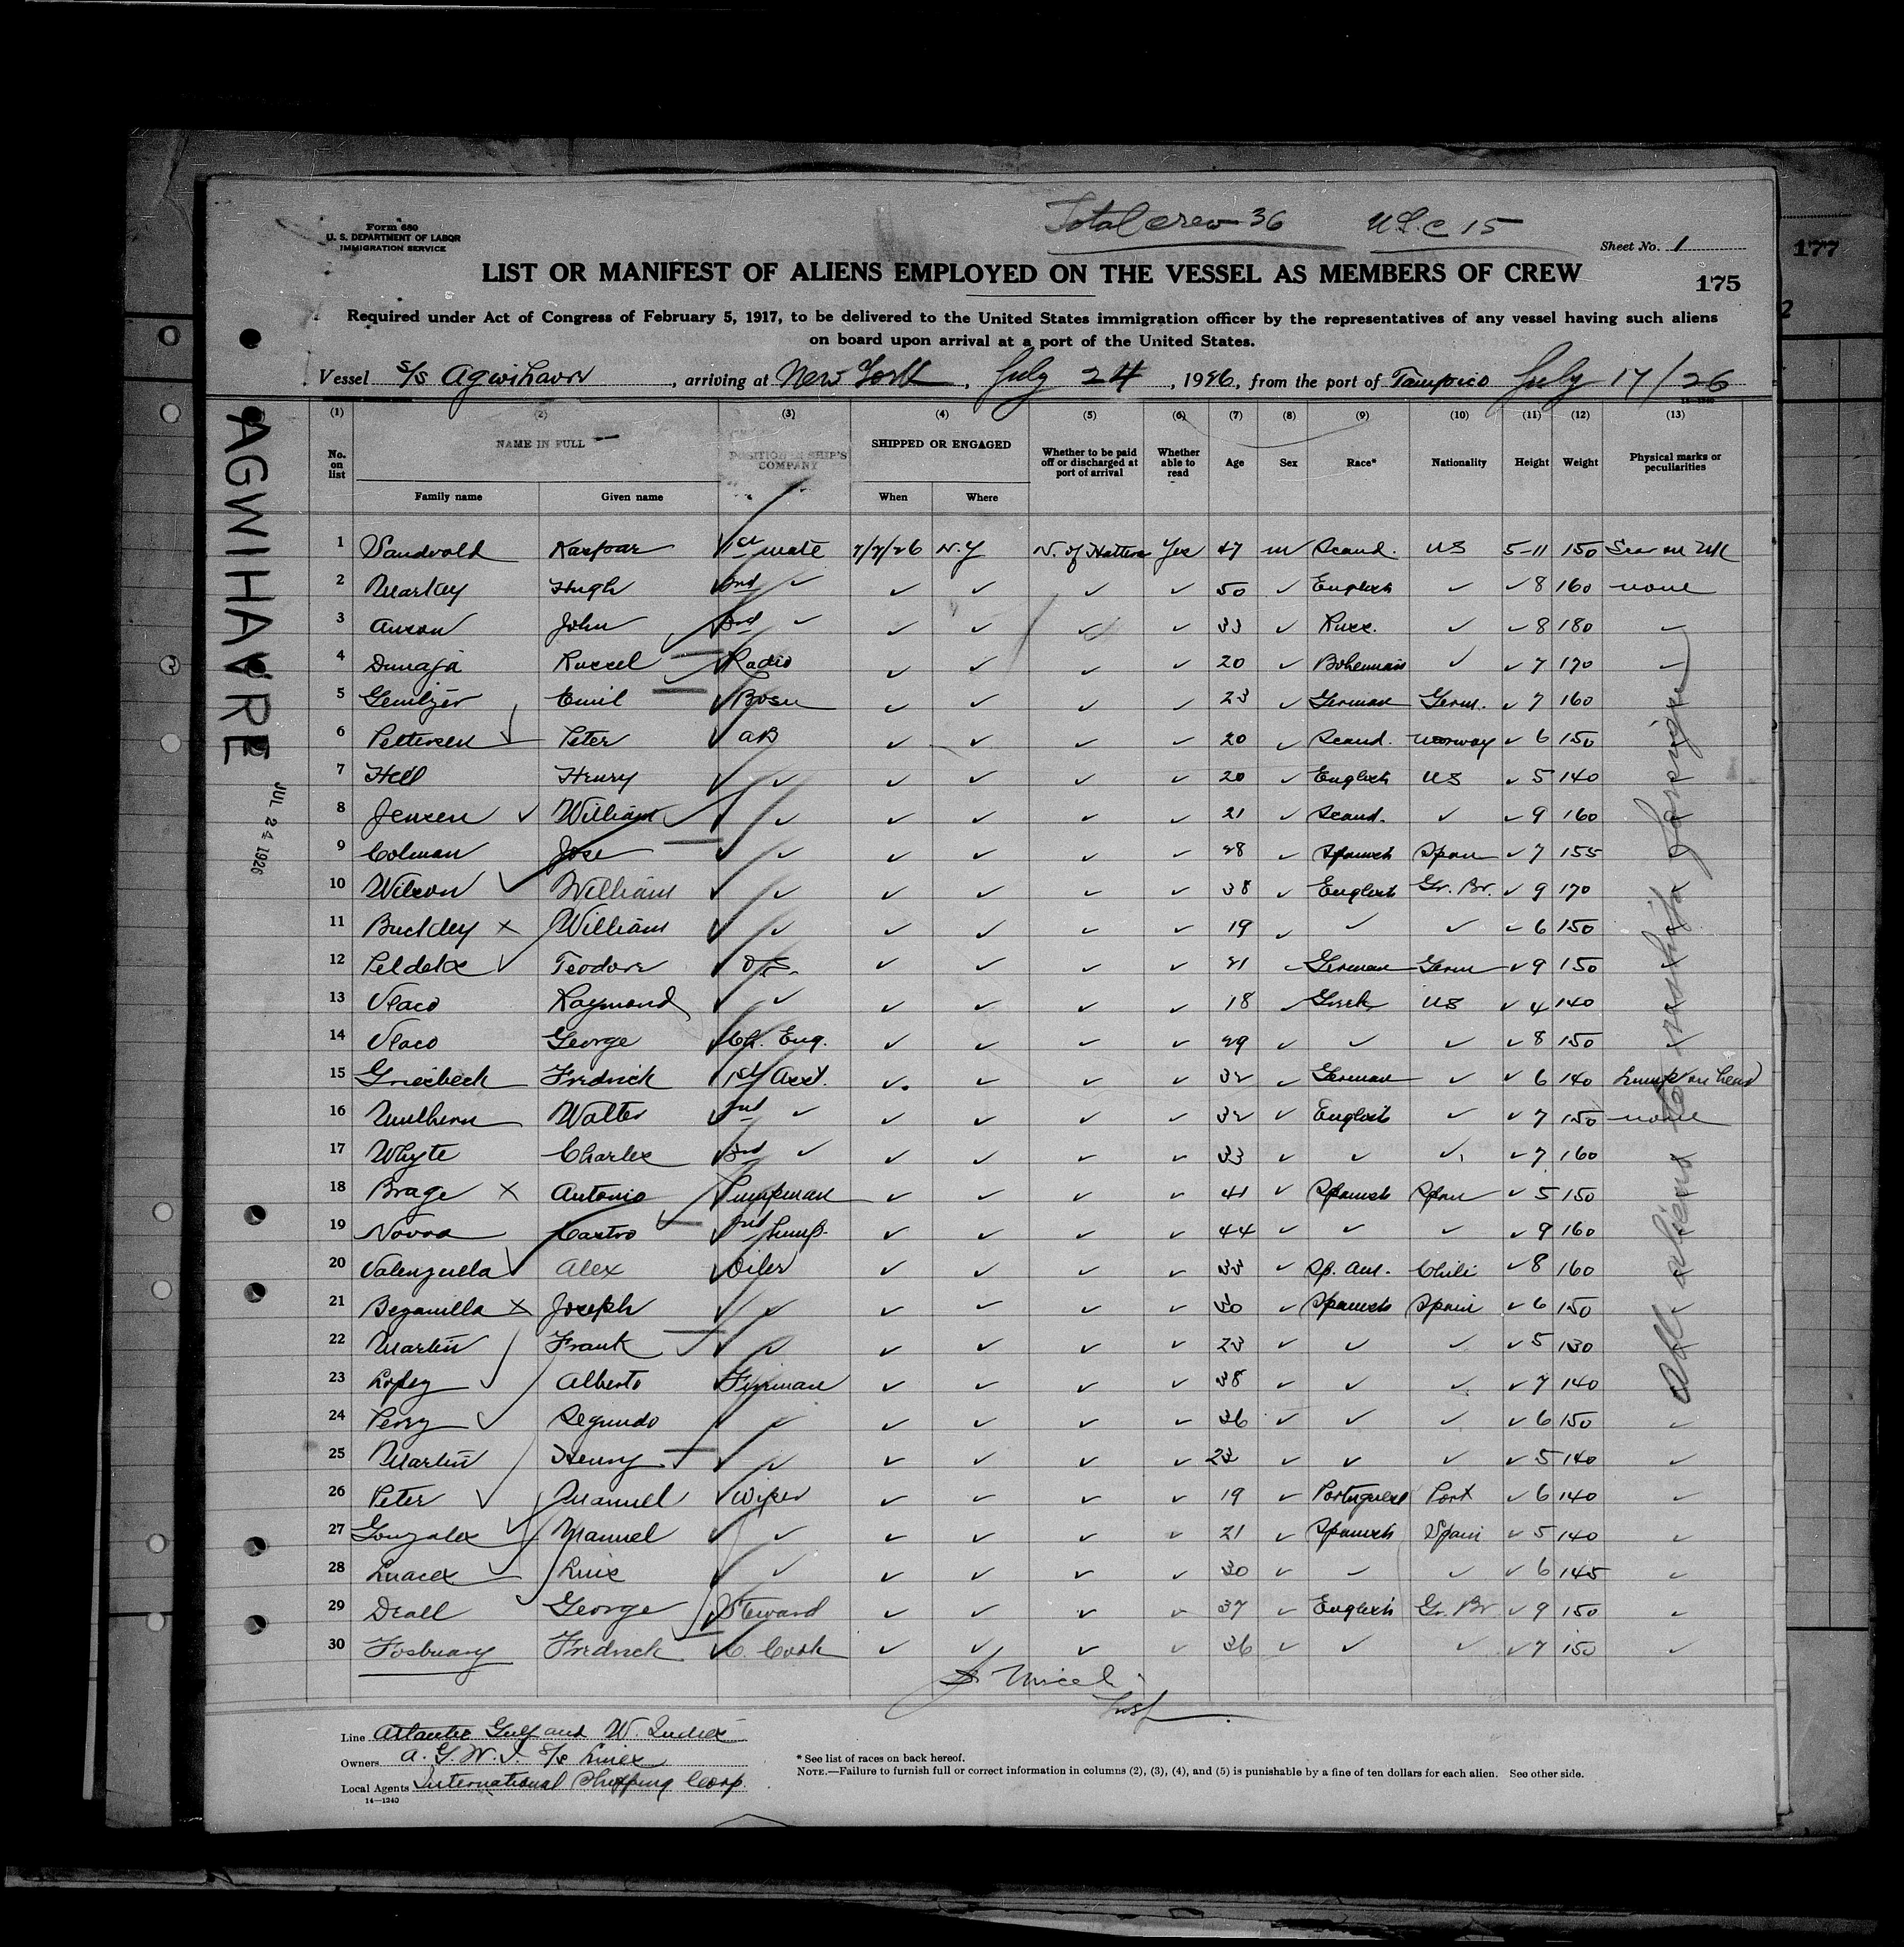 Total crew 36 U.S.C 15
Form 680
U. S. DEPARTMENT OF LABOR
IMMIGRATION SERVICE
Sheet No. 1
177
LIST OR MANIFEST OF ALIENS EMPLOYED ON THE VESSEL AS MEMBERS OF CREW
175
2
Required under Act of Congress of February 5, 1917, to be delivered to the United States immigration officer by the representatives of any vessel having such aliens
on board upon arrival at a port of the United States.
Vessel S/S Agwihavre, arriving at New York, July 24, 1926, from the port of Tampico July 17/26
AGWIHAVRE
JUL 24 1926
(1) (2) (3) (4) (5) (6) (7) (8) (9) (10) (11) (12) (13)
No. on list NAME IN FULL Family name Given name POSITION IN SHIP'S COMPANY SHIPPED OR ENGAGED When Where Whether to be paid off or discharged at port of arrival Whether able to read Age Sex Race* Nationality Height Weight Physical marks or peculiarities
1 Sandvold Kaspar 1st mate 7/7/26 N.Y N. of Hatteras Yes 47 m Scand. US 5-11 150 Scar on
2 Markey Hugh 2nd ✓ ✓ ✓ ✓ ✓ 50 ✓ English ✓ ✓ 8 160 none
3 Anson John 3rd ✓ ✓ ✓ ✓ ✓ 33 ✓ Russ. ✓ ✓ 8 180 ✓
4 Dunaja Russel Radio ✓ ✓ ✓ ✓ 20 ✓ Bohemian ✓ ✓ 7 170 ✓
5 Emil Bosn ✓ ✓ ✓ ✓ 23 ✓ German Germ. ✓ 7 160
6 Pettersen Peter AB ✓ ✓ ✓ ✓ 20 ✓ Scand. Norway ✓ 6 150
7 Hill Henry ✓ ✓ ✓ ✓ ✓ ✓ 20 ✓ English US ✓ 5 140
8 Jensen ✓ William ✓ ✓ ✓ ✓ ✓ ✓ 21 ✓ Scand. ✓ ✓ 9 160
9 Colman Jose ✓ ✓ ✓ ✓ ✓ ✓ 28 ✓ Spanish Span ✓ 7 155
10 Wilson ✓ William ✓ ✓ ✓ ✓ ✓ ✓ 38 ✓ English Gr. Br. ✓ 9 170
11 Buckley × William ✓ ✓ ✓ ✓ ✓ ✓ 19 ✓ ✓ ✓ ✓ 6 150
12 ✓ Teodore O.S. ✓ ✓ ✓ ✓ 21 ✓ German Germ ✓ 9 150 ✓
13 Vlaco Raymond ✓ ✓ ✓ ✓ ✓ ✓ 18 ✓ Greek US ✓ 4 140
14 Vlaco George Ch. Eng. ✓ ✓ ✓ ✓ 29 ✓ ✓ ✓ ✓ 8 150 ✓
15 Griesbeck Fredrick 1st Asst. ✓ ✓ ✓ ✓ 32 ✓ German ✓ ✓ 6 140 Lump on head
16 Mulhern Walter 2nd ✓ ✓ ✓ ✓ ✓ 32 ✓ English ✓ ✓ 7 150 none
17 Whyte Charles 3rd ✓ ✓ ✓ ✓ ✓ 33 ✓ ✓ ✓ ✓ 7 160
18 Brage × Antonio Pumpman ✓ ✓ ✓ ✓ 41 ✓ Spanish Span ✓ 5 150
19 Novoa Castro 2nd Pump. ✓ ✓ ✓ ✓ 44 ✓ ✓ ✓ ✓ 9 160
20 Valenzuela ✓ Alex Oiler ✓ ✓ ✓ ✓ 33 ✓ Sp. Am. Chili ✓ 8 160
21 Bezanilla × Joseph ✓ ✓ ✓ ✓ ✓ ✓ 30 ✓ Spanish Spain ✓ 6 150
22 Martin Frank ✓ ✓ ✓ ✓ ✓ ✓ 23 ✓ ✓ ✓ ✓ 5 130
23 Lopez ✓ Alberto Fireman ✓ ✓ ✓ ✓ 38 ✓ ✓ ✓ ✓ 7 140
24 Perez ✓ Segundo ✓ ✓ ✓ ✓ ✓ ✓ 36 ✓ ✓ ✓ ✓ 6 150 ✓
25 Martin Henry ✓ ✓ ✓ ✓ ✓ ✓ 23 ✓ ✓ ✓ ✓ 5 140 ✓
26 Peter ✓ Manuel Wiper ✓ ✓ ✓ ✓ 19 ✓ Portuguese Port ✓ 6 140 ✓
27 Gonzalex ✓ Manuel ✓ ✓ ✓ ✓ ✓ ✓ 21 ✓ Spanish Spain ✓ 5 140 ✓
28 Luaces ✓ Luis ✓ ✓ ✓ ✓ ✓ ✓ 30 ✓ ✓ ✓ ✓ 6 145 ✓
29 Deall ✓ George Steward ✓ ✓ ✓ ✓ 37 ✓ English Gr. Br ✓ 9 150 ✓
30 Fosbuary Fredrick C. Cook ✓ ✓ ✓ ✓ 36 ✓ ✓ ✓ ✓ 7 150 ✓
All aliens to reship foreign
Insp
Line Atlantic Gulf and W. Indies
Owners A. G. W. I. S/S Lines
Local Agents International Shipping Corp.
14—1240
* See list of races on back hereof.
NOTE.—Failure to furnish full or correct information in columns (2), (3), (4), and (5) is punishable by a fine of ten dollars for each alien. See other side.